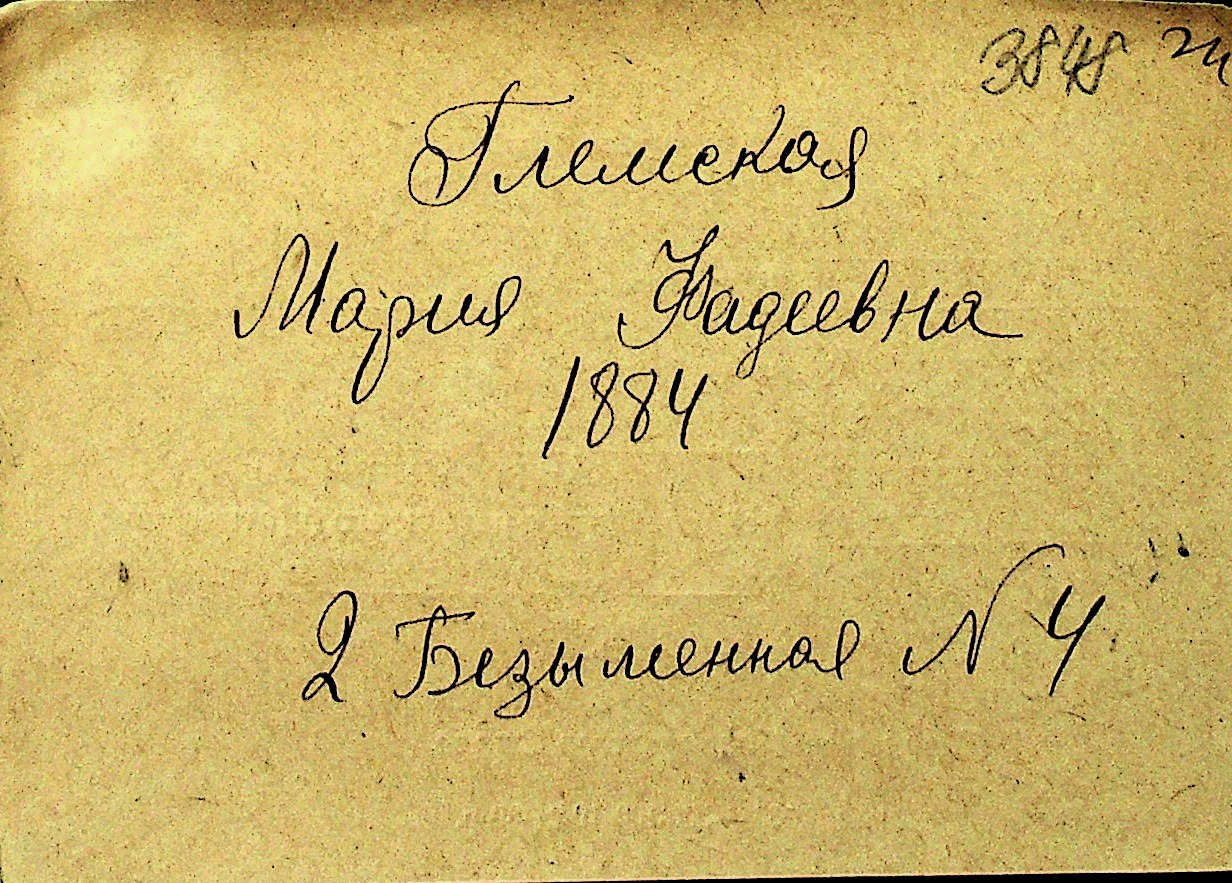 3848
Глемская
Мария Фадеевна
1884
2 Безыменная N 4